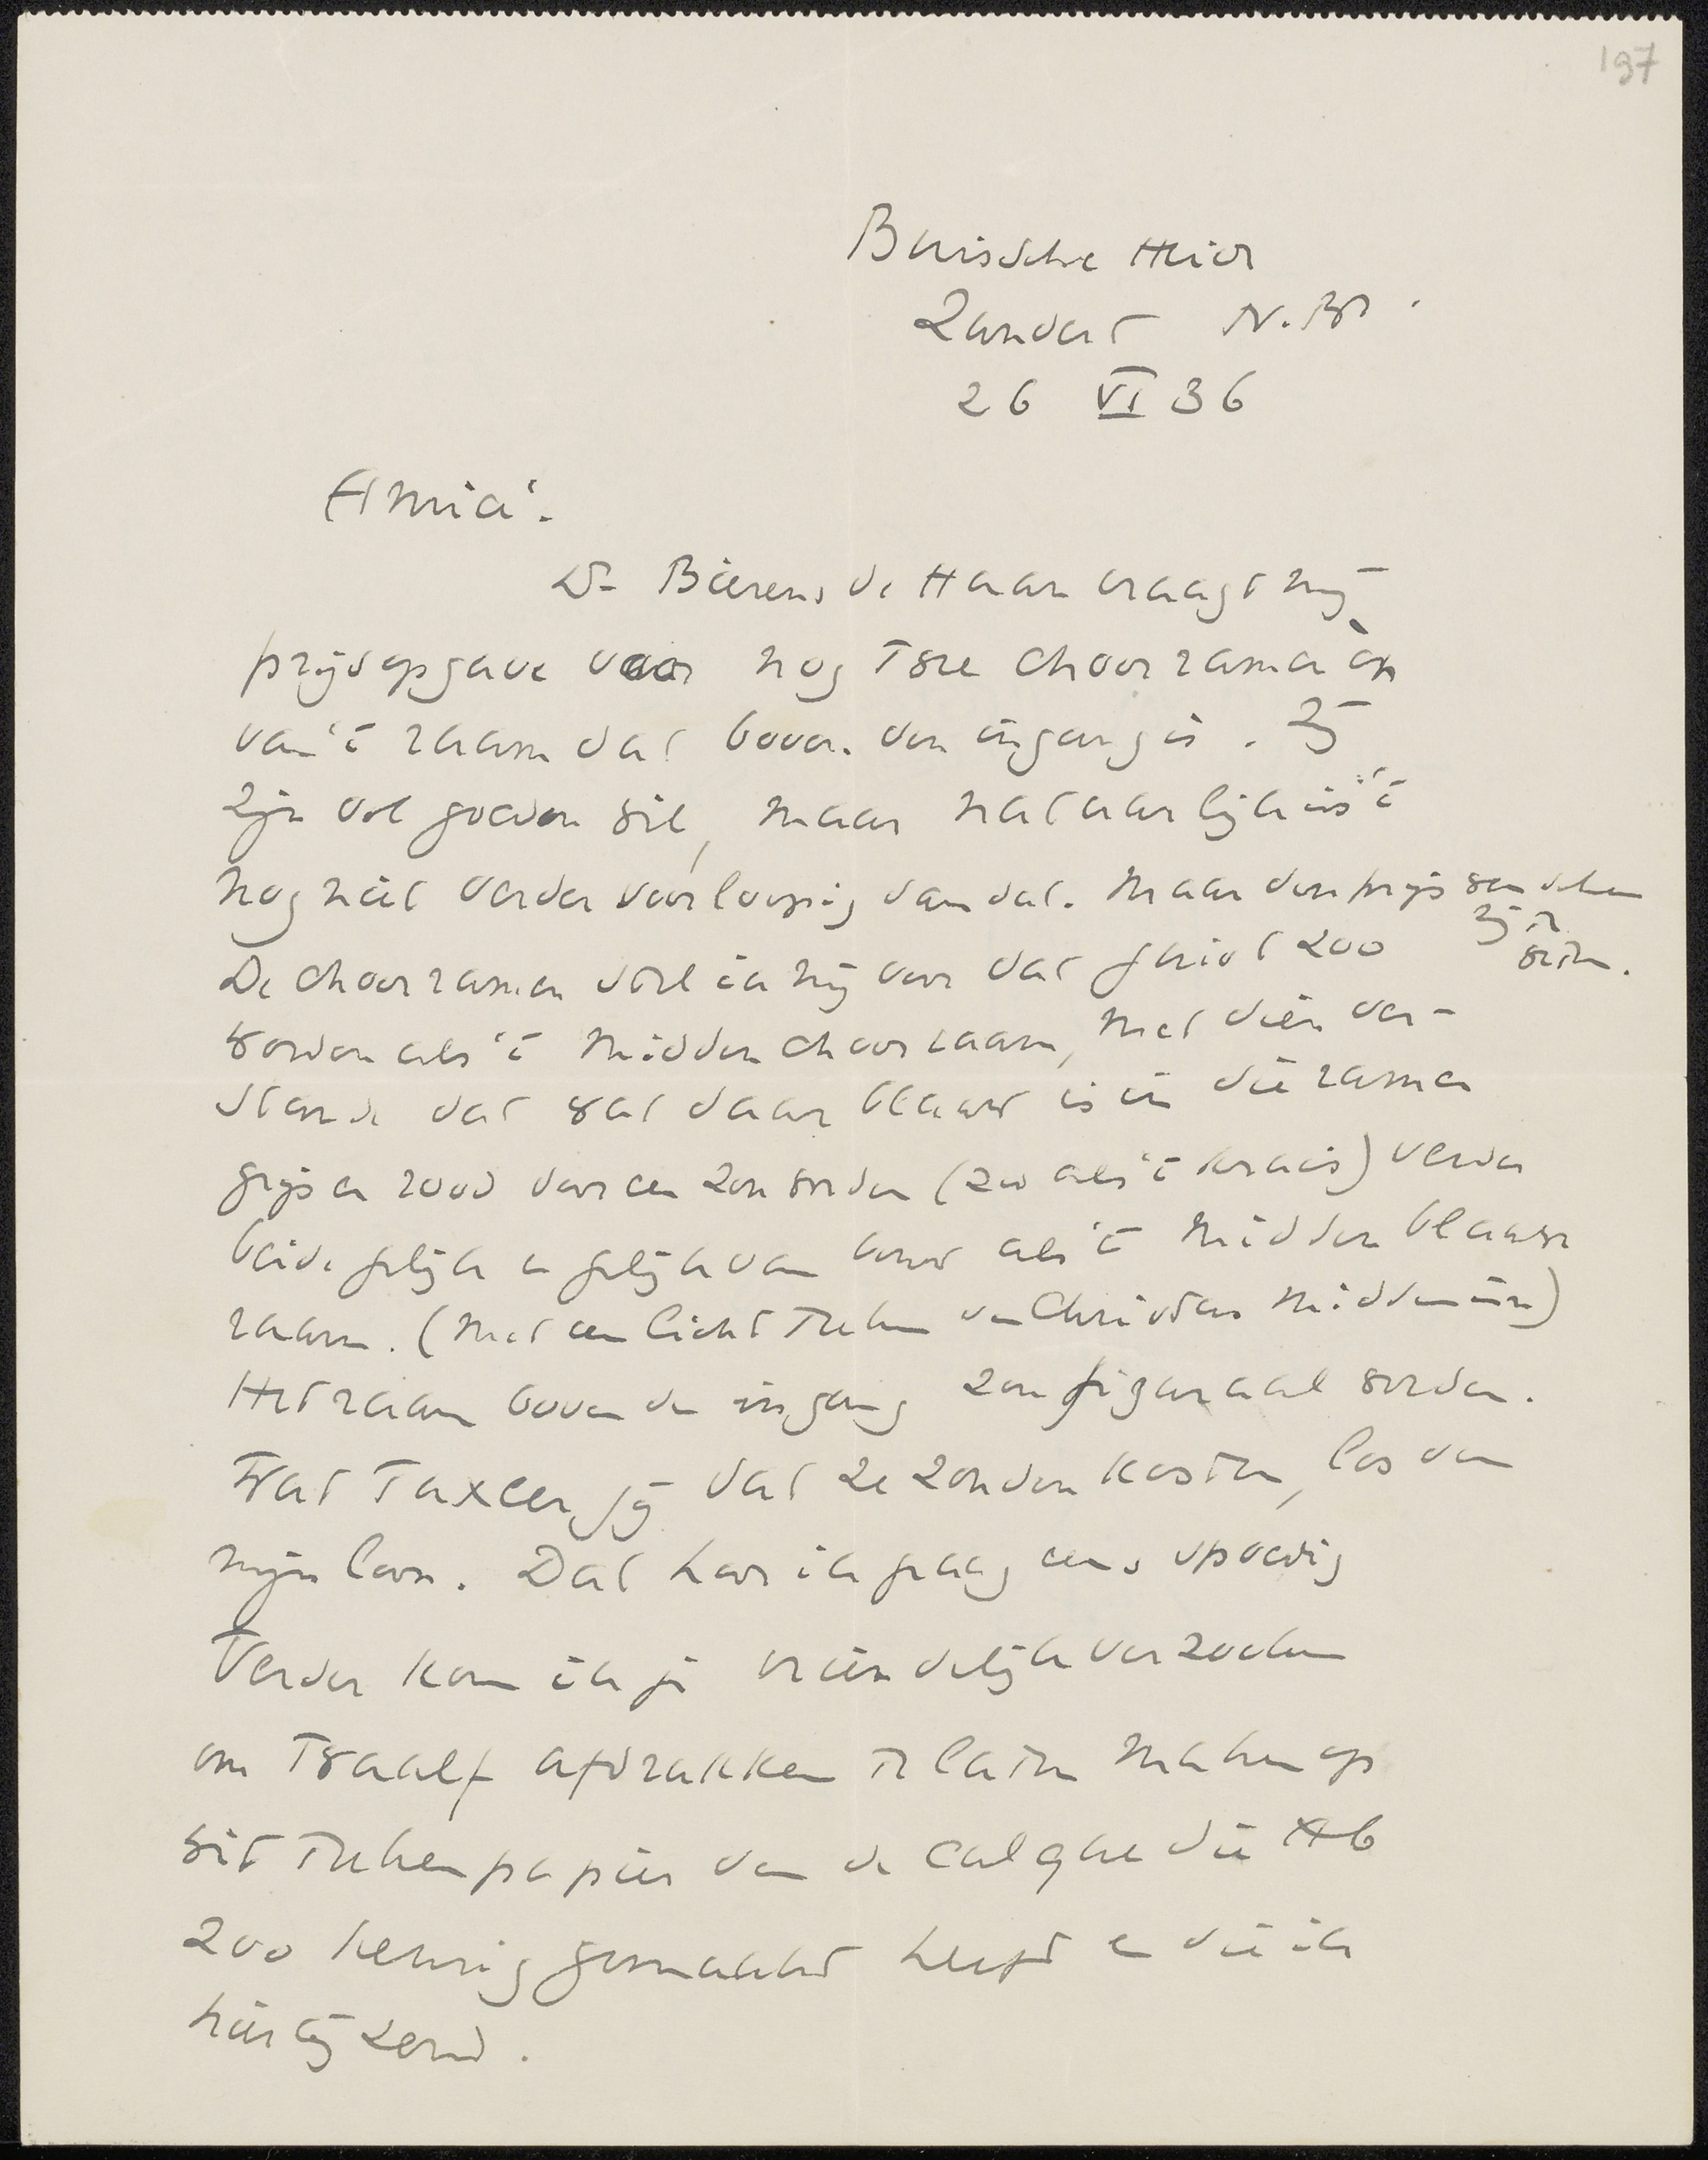 197
Buissche Heide
Zundert N.Br.
26 VI 36
Amice.
Dr Bierens de Haan vraagt mij
prijsopgave voor nog twee choorramen en
van 't raam dat boven den ingang is. Zij
zijn vol goeden wil, maar natuurlijk is 't
nog niet verder voorloopig dan dat. Maar den prijs wenschen
zij te
weten.
De choorramen stel ik mij voor dat geheel zoo
worden als 't midden choorraam, met dien ver-
stande dat wat daar blauw is in die ramen
grijs en rood daarin zou worden (zoo als 't kruis) verder
beide gelijk en gelijk van bouw als 't midden blauwe
raam. (met een licht teeken van Christus midden in)
Het raam boven den ingang zou figuraal worden.
Wat taxeer jij dat ze zouden kosten, los van
mijn loon. Dat hoor ik graag eens spoedig
Verder kom ik je vriendelijk verzoeken
om twaalf afdrukken te laten maken op
wit teekenpapier van de calque die Hb
zoo keurig gemaakt heeft en die ik
hierbij zend.